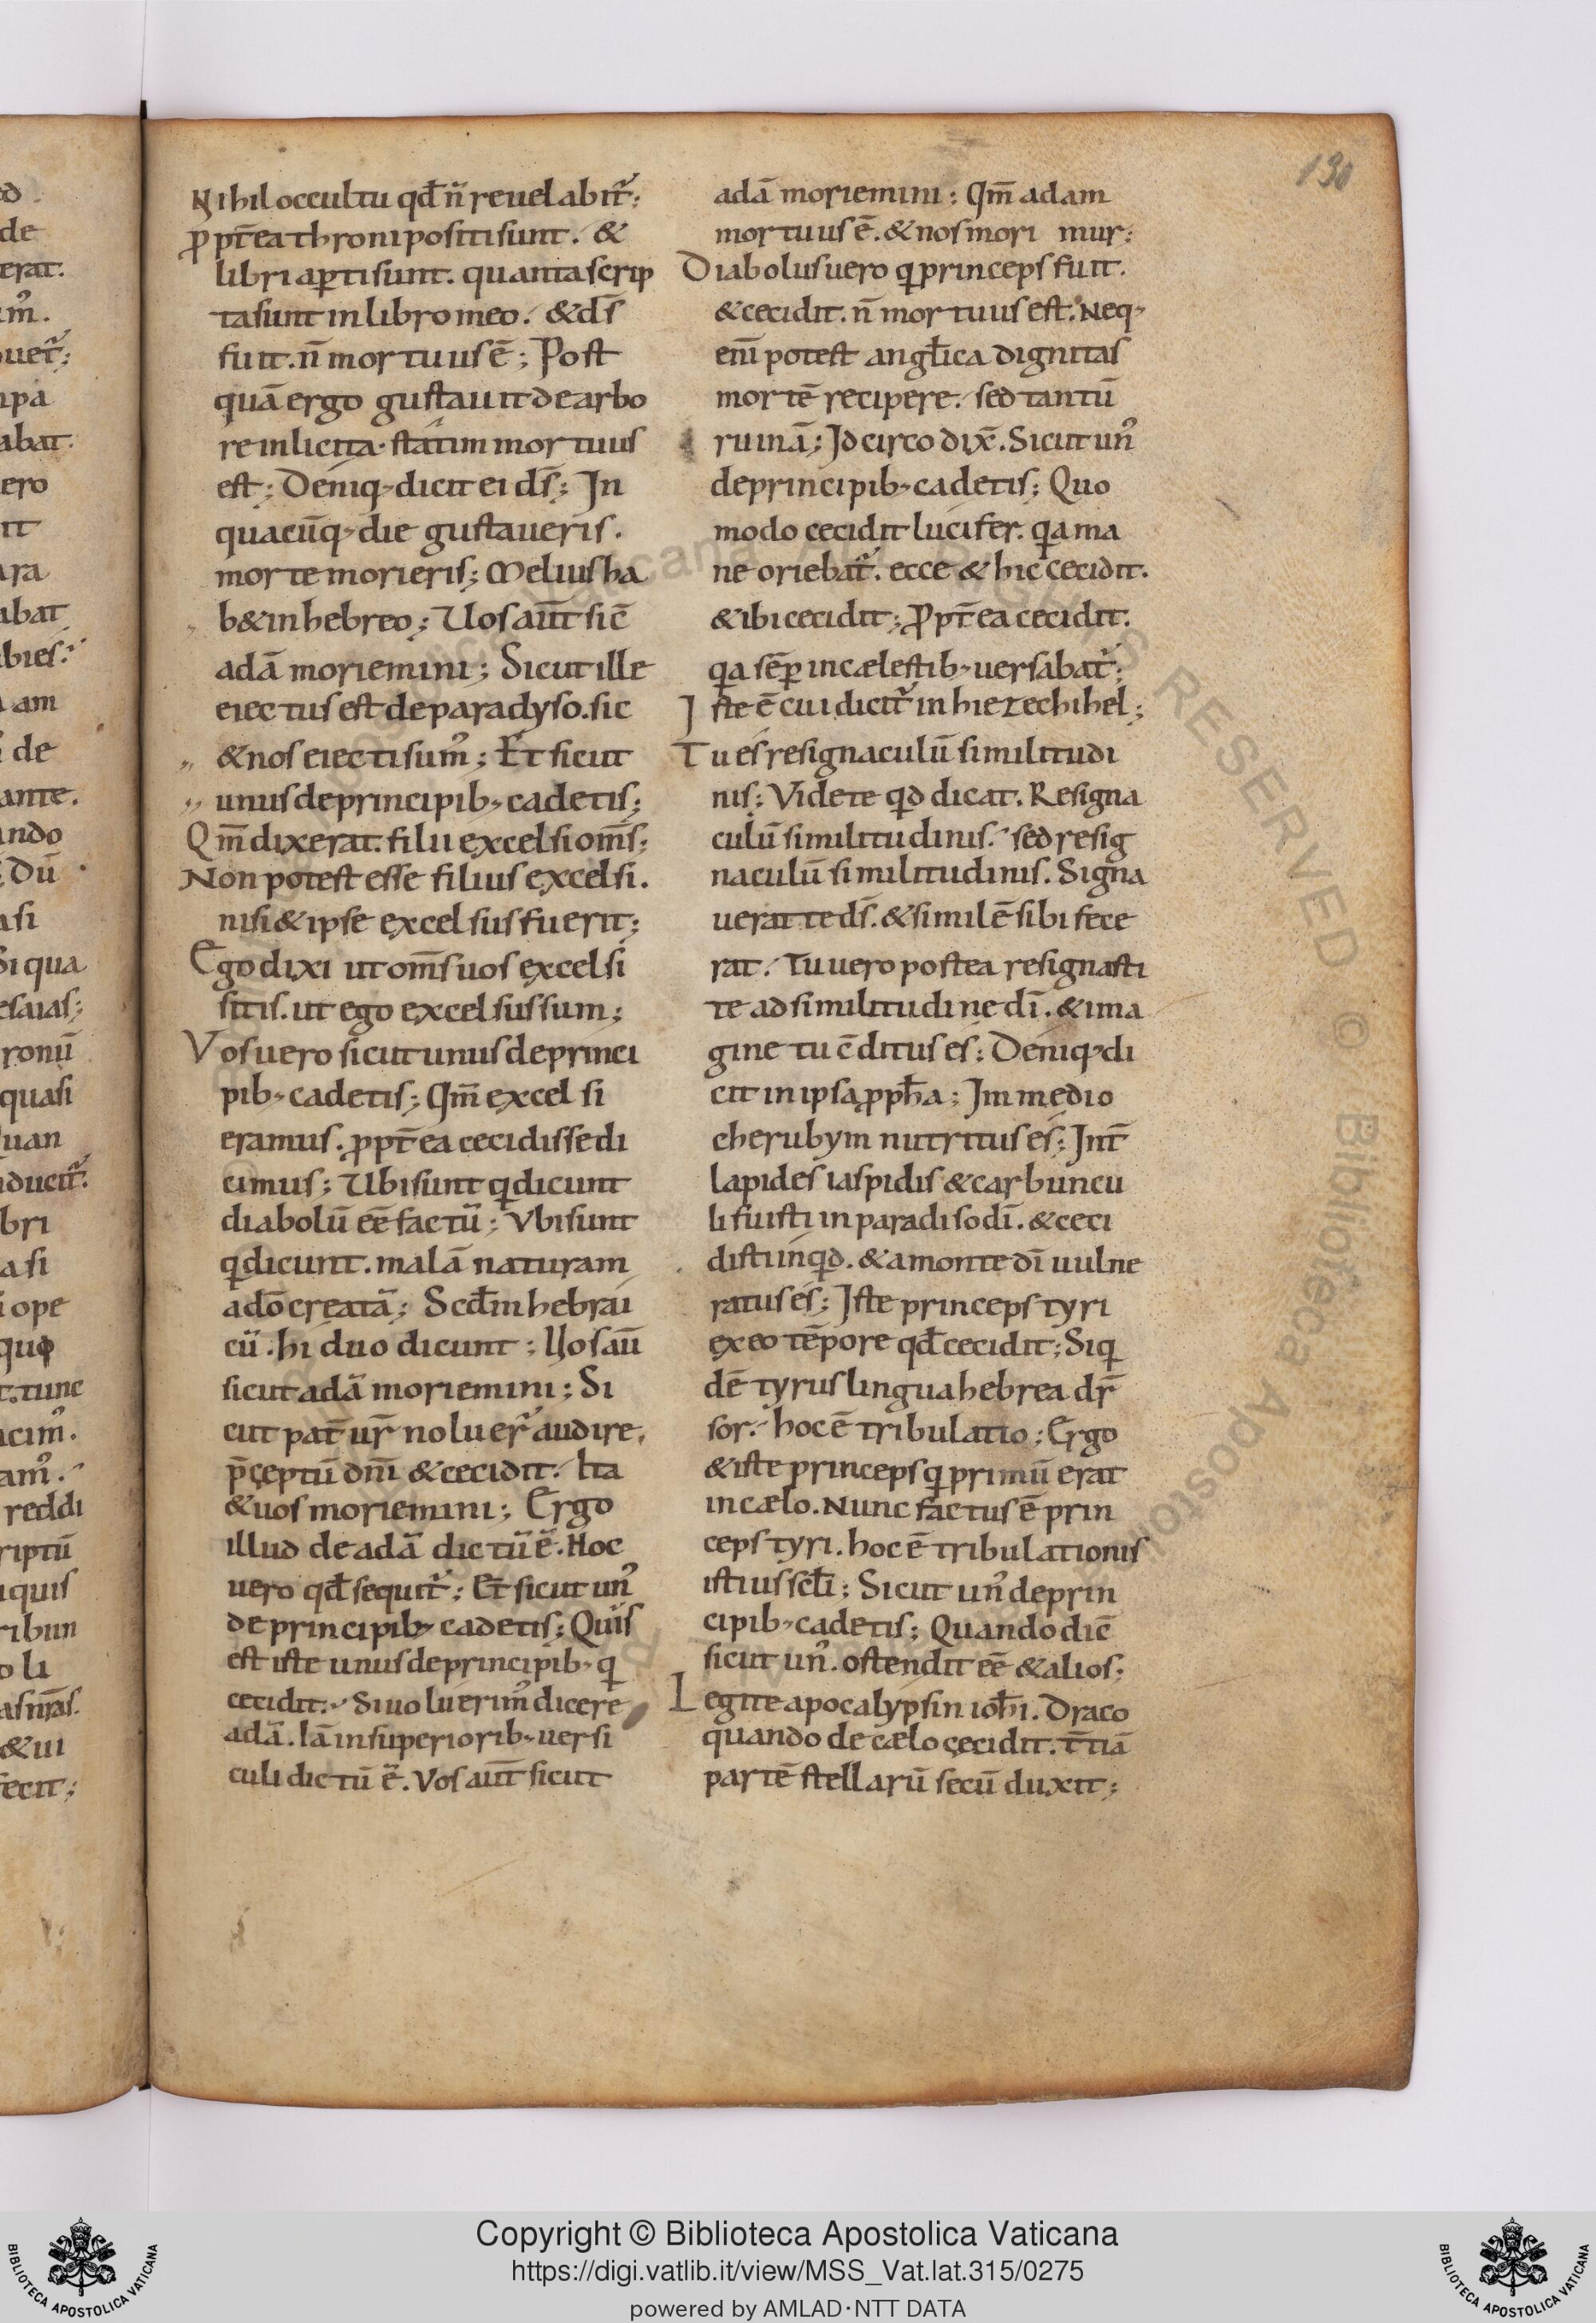 130
Nihil occultu qđ n̄ reuelabit᷑;
ꝓpt̄ea throni positi sunt. &
libri aꝑti sunt. quanta scrip
ta sunt in libro meo. & ds̄
fuit. n̄ mortuus ē; Post
quā ergo gustauit de arbo
re inlicita. statim mortuus
est; Deniq; dicit ei ds̄; In
quacūq; die gustaueris.
morte morieris; Melius ha
b& in hebreo; Uos aūt sic̄
adā moriemini; Sicut ille
eiectus est de paradyso. sic
& nos eiecti sum᾿; Et sicut
unus de principib; cadetis;
Qm̄ dixerat. filii excelsi om̄s;
Non potest esse filius excelsi.
nisi & ipse excelsus fuerit;
Ego dixi ut om̄s uos excelsi
sitis. ut ego excelsus sum;
Vos uero sicut unus de princi
pib; cadetis; Qm̄ excelsi
eramus. ꝓpt̄ea cecidisse di
cimus; Ubi sunt qͥ dicunt
diabolū eē factū; Vbi sunt
qͥ dicunt. malā naturam
a dō creatā; Scđm hebrai
cū. hi duo dicunt; Uos aū
sicut adā moriemini; Si
cut pat̄ ur̄ noluer̄ audire,
p̄ceptū dn̄i & cecidit. Ita
& uos moriemini; Ergo
illud de adā dictū ē. Hoc
uero qđ sequit᷑; Et sicut un᾿
de principib; cadetis; Quis
est iste unus de principib; qͥ
cecidit. Si uoluerim᾿ dicere
adā. Iā in superiorib; uersi
culi dictū ē. Vos aūt sicut
adā moriemini; Qm̄ adam
mortuus ē. & nos mori mur;
Diabolus uero qͥ princeps fuit.
& cecidit. n̄ mortuus est. Neq;
enī potest angl̄ica dignitas
mortē recipere. sed tantū
ruinā; Idcirco dix̄. Sicut un᾿
de principib; cadetis; Quo
modo cecidit lucifer. qͥa ma
ne oriebat᷑. ecce & hic cecidit.
& ibi cecidit; ꝓpt̄ea cecidit.
qͥa sēꝑ in cælestib; uersabat᷑;
Iste ē cui dicit᷑ in hiezechihel;
Tu es resignaculū similitudi
nis; Videte qͥd dicat. Resigna
culū similitudinis. sed resig
naculū similitudinis. Signa
uerat te ds̄. & similē sibi fece
rat. Tu uero postea resignasti
te ad similitudine dī. & ima
gine tu c̄ditus es; Deniq; di
cit in ipsa ꝓph̄a; Im medio
cherubym nutritus es; Int̄
lapides iaspidis & carbuncu
li fuisti in paradiso dī. & ceci
disti inqͥd. & a monte dī uulne
ratus es; Iste princeps tyri
ex eo tēpore qđ cecidit; Siqͥ
dē tyrus lingua hebrea dr̄
sor. hoc ē tribulatio; Ergo
& iste princeps qͥ primū erat
in cælo. Nunc factus ē prin
ceps tyri. hoc ē tribulationis
istius sc̄li; Sicut un᾿ de prin
cipib; cadetis; Quando dic̄
sicut un᾿. ostendit eē & alios;
Legite apocalypsin ioh̄i. Draco
quando de cælo cecidit. t̄tiā
partē stellarū secū duxit;
Copyright © Biblioteca Apostolica Vaticana
https://digi.vatlib.it/view/MSS_Vat.lat.315/0275
powered by AMLAD·NTT DATA
BIBLIOTECA APOSTOLICA VATICANA
BIBLIOTECA APOSTOLICA VATICANA